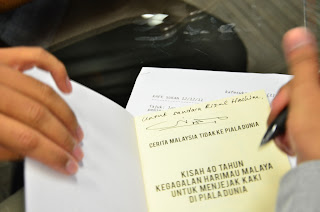 Untuk saudara Rizal Hashim,
CERITA MALAYSIA TIDAK KE PIALA DUNIA
KISAH 40 TAHUN
KEGAGALAN HARIMAU MALAYA
UNTUK MENJEJAK KAKI
DI PIALA DUNIA